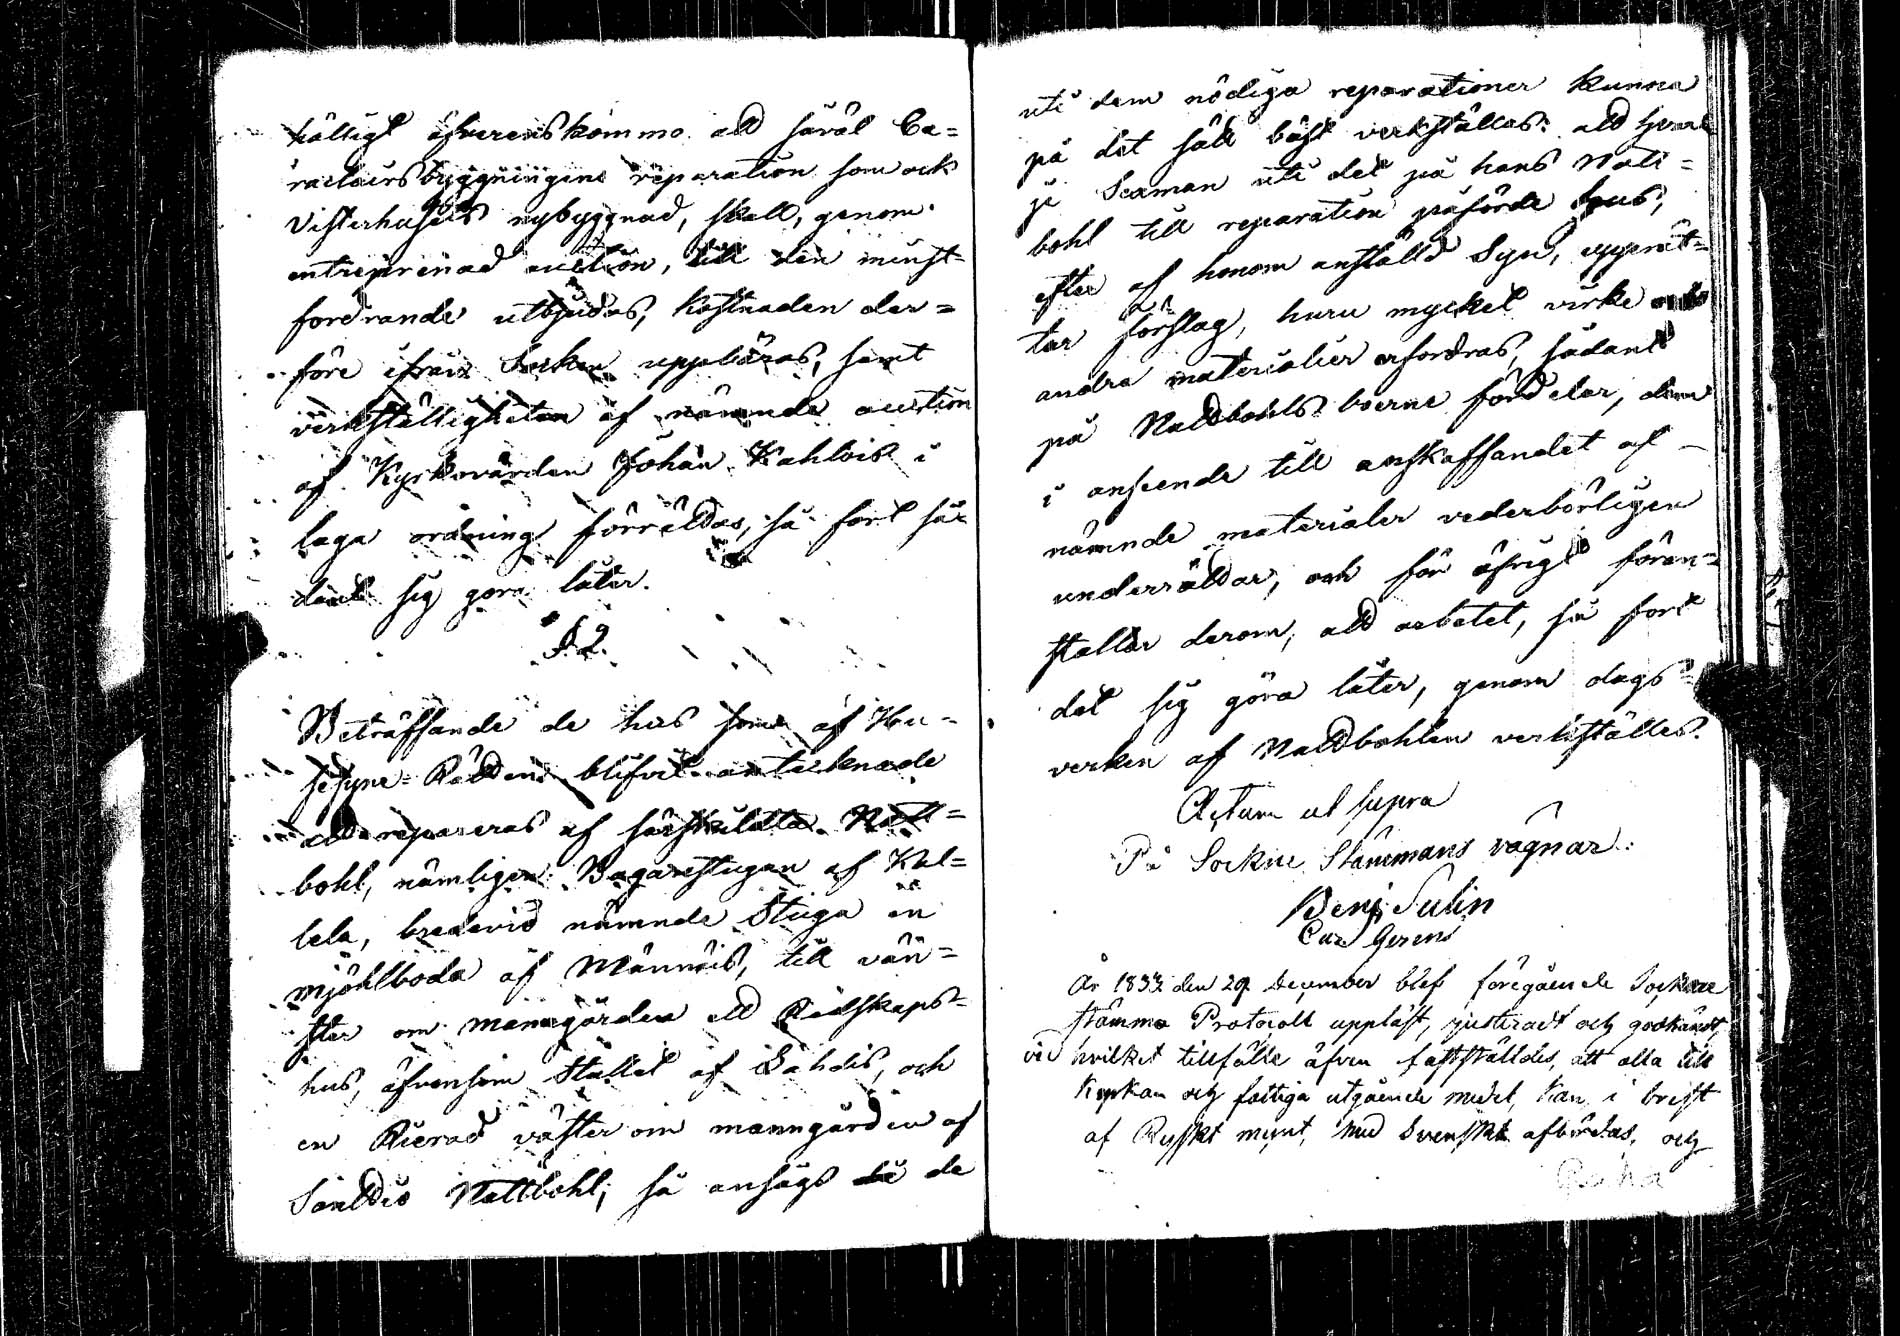 hälligt öfverenskommo att såväl Ca=
racteirsbyggningens reparation som ock
Visterhusets nybyggnad, skall, genom
entreprenad auction, till den minst=
fordrande utbjudas, kostnaden der=
före ifrån Socken uppbäras, samt
verkställigheten af nämnde auction
af Kyrkovärden Johan Kahlois i
laga ordning förrättas, så fort så=
dant sig göra låter.
§ 2.
Beträffande de hus som af Hu=
sesyns=Rätten blifvit antecknade
att repareras af särskilldta Natt=
bohl, nämligen Bagarestugan af Kal=
lela, bredevid nämnde Stuga en
mjöhlboda af Männäis, till vän=
ster om manngården ett Redskaps=
hus, äfvensom Stallet af Lahdis, och
en Rierad väster om manngården af
Nattbohl; så ansågs de
uti dem nödiga reparationer kunna
på det sätt bäst verkställas: att hvar=
je Sexman uti det på hans Natt=
bohl till reparation påförde hus,
efter af honom anställd Syn, upprät=
tar förslag, huru mycket virke och
andra materialier erfordras, sådant
på Nattbohls boerne fördelar, dem
i anseende till anskaffandet af
nämnde materialer vederbörligen
underrättar, och för öfrigt föran=
staltar derom, att arbetet, så fort
det sig göra låter, genom dags=
verken af Nattbohlen verkställes.
Actum ut supra
På Sockne Stämmans vägnar:
Benj. Sulin
Cur Gerens
År 1833 den 29 December blef föregående Sockne
stämmo Protocoll uppläst, justeradt och godkändt,
vid hvilket tillfälle äfven fastställdes, att alla till
Kyrkan och fattiga utgående medel, kan i brist
af Ryskt mynt, med Svenskt afbördas, och